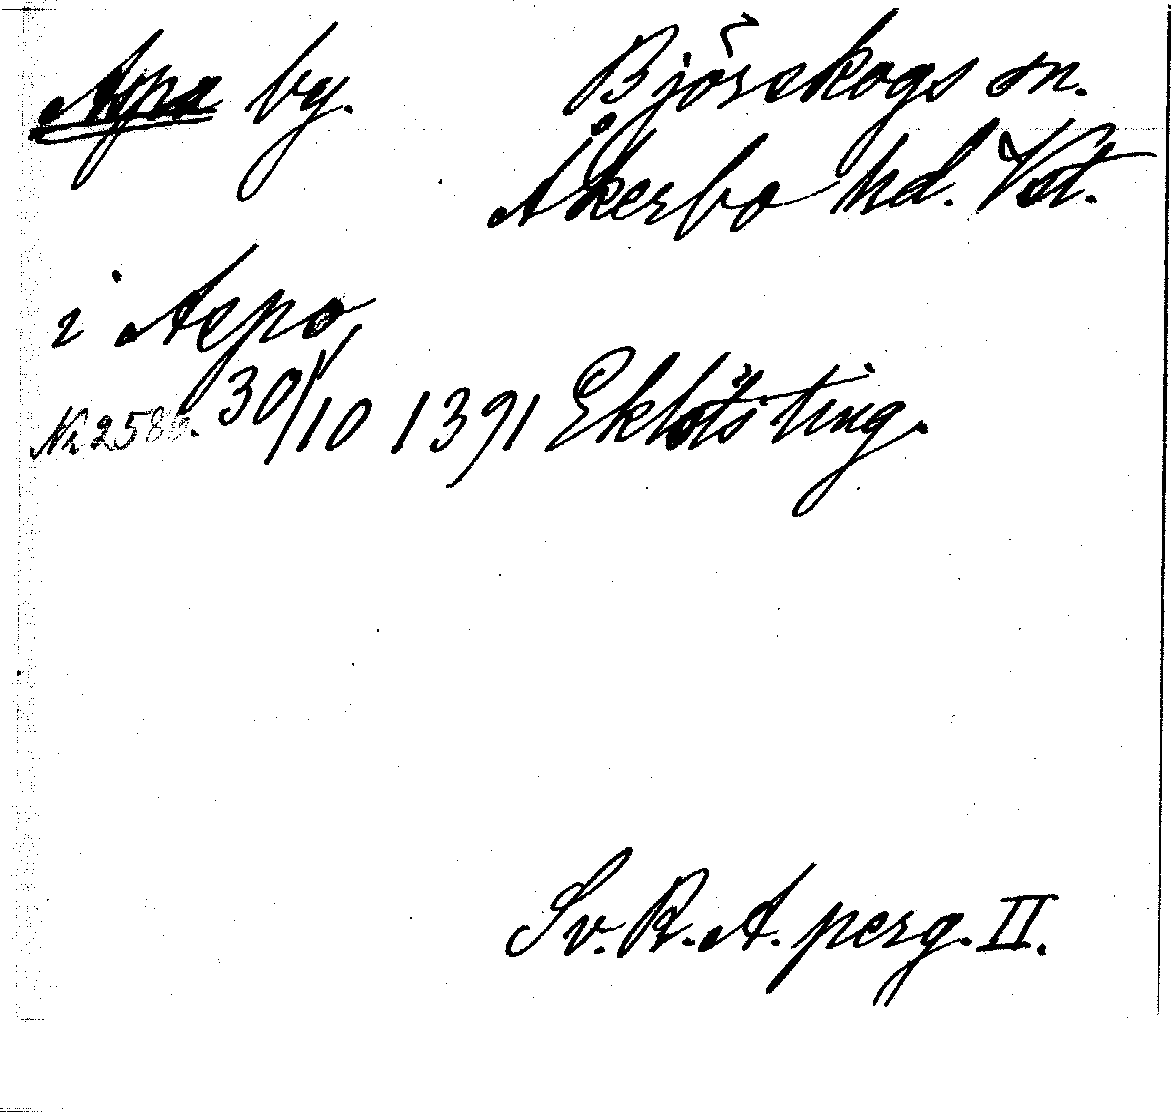 Aspa by. Björskogs sn.
Åkerbo hd. Vstl.
i Aspo
Nr 2586. 30/10 1391 Eklöts ting.
Sv. R. A. perg. II.